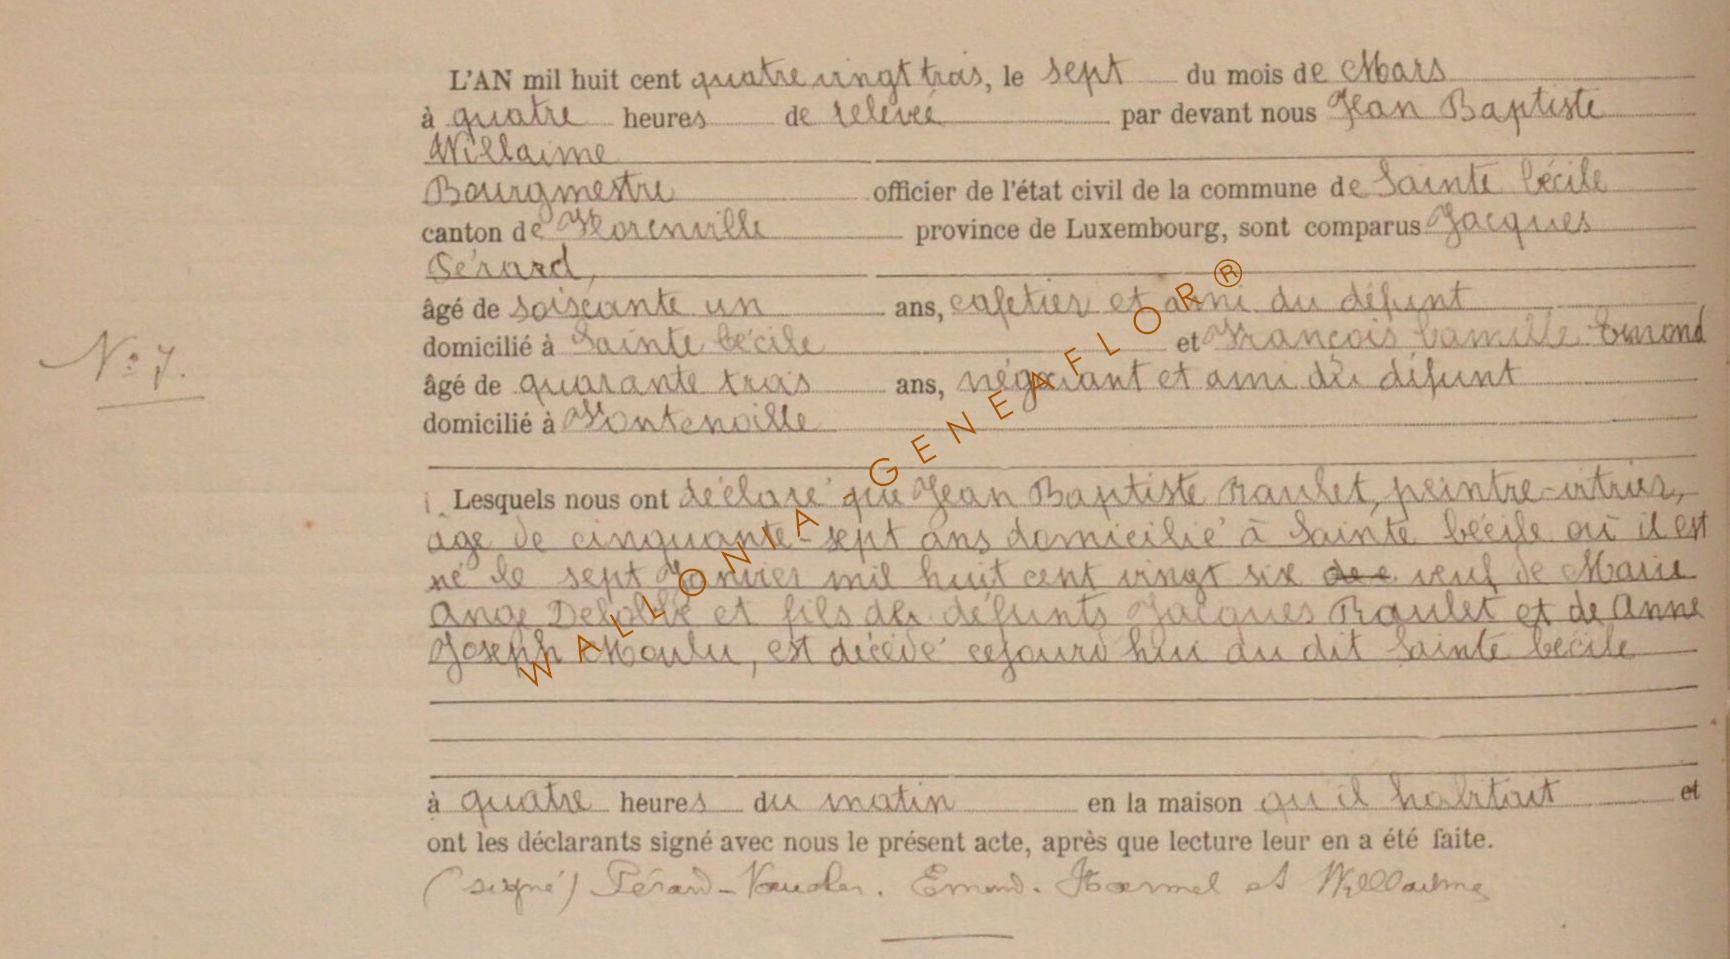 L'AN mil huit cent quatre vingt trois, le sept du mois de Mars
à quatre heures de relevée par devant nous Jean Baptiste
Willaime
Bourgmestre officier de l'état civil de la commune de Sainte Cécile
canton de Florenville province de Luxembourg, sont comparus Jacques
Pérard,
âgé de soiscante un ans, cafetier et ami du défunt
domicilié à Sainte Cécile et François Camille Emond
N° 7.
âgé de quarante trois ans, négociant et ami du défunt
domicilié à Fontenoille
Lesquels nous ont déclaré que Jean Baptiste Raulet, peintre-vitrier,
âgé de cinquante-sept ans domicilié à Sainte Cécile où il est
né le sept Janvier mil huit cent vingt six veuf de Marie
Ange et fils de défunts Jacques Raulet et de Anne
Joseph Moulu, est décédé cejourd'hui du dit Sainte Cécile
à quatre heures du matin en la maison qu'il habitait et
ont les déclarants signé avec nous le présent acte, après que lecture leur en a été faite.
(signé) Pérard - . Emond. et Willaime
WALLONIA - GENEAFLOR®